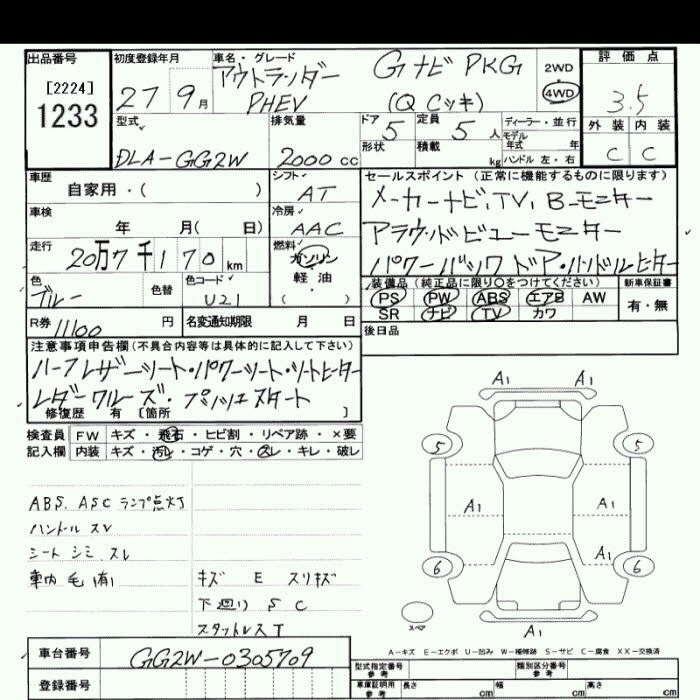 出品番号
[2224]
1233
初度登録年月
27年9月
車名・グレード
アウトランダー Gナビ PKG
PHEV (Q Cッキ)
2WD
4WD
評価点
3.5
外装 内装
C C
型式
DLA-GG2W
排気量
2000 cc
ドア 5
定員 5 人
形状
積載 kg
ディーラー・並行
モデル年式 年
ハンドル 左・右
車歴
自家用・( )
シフト
AT
車検
年 月( 日)
冷房
AAC
走行
20万7千170 km
燃料
ガソリン
軽油
( )
色
ブルー
色替
色コード
U21
セールスポイント (正常に機能するものに限ります)
メーカーナビ,TV,B-モニター
アラウンドビューモニター
パワーバックドア・ハンドルヒーター
装備品 (純正品に限り○をつけてください)
PS PW ABS エアB AW
SR ナビ TV カワ
新車保証書
有・無
R券 11100 円
名変通知期限 月 日
後日品
注意事項申告欄(不具合内容等は具体的に記入して下さい)
ハーフレザーシート・パワーシート・シートヒーター
レダークルーズ・プッシュスタート
修復歴 有 [箇所 ]
検査員 FW キズ・飛石・ヒビ割・リペア跡・×要
記入欄 内装 キズ・汚レ・コゲ・穴・スレ・キレ・破レ
ABS, ASC ランプ点灯
ハンドル スレ
シート シミ スレ
車内 毛(有)
キズ E スリキズ
下廻り S C
スタットレス T
A1 A1
5 5
A1 A1
A1
6 6
スペア
A1
A-キズ E-エクボ U-凹み W-補修跡 S-サビ C-腐食 XX-交換済
車台番号
GG2W-0305709
登録番号
型式指定番号 参考
類別区分番号 参考
車庫証明用 参考
長さ cm 幅 cm 高さ cm